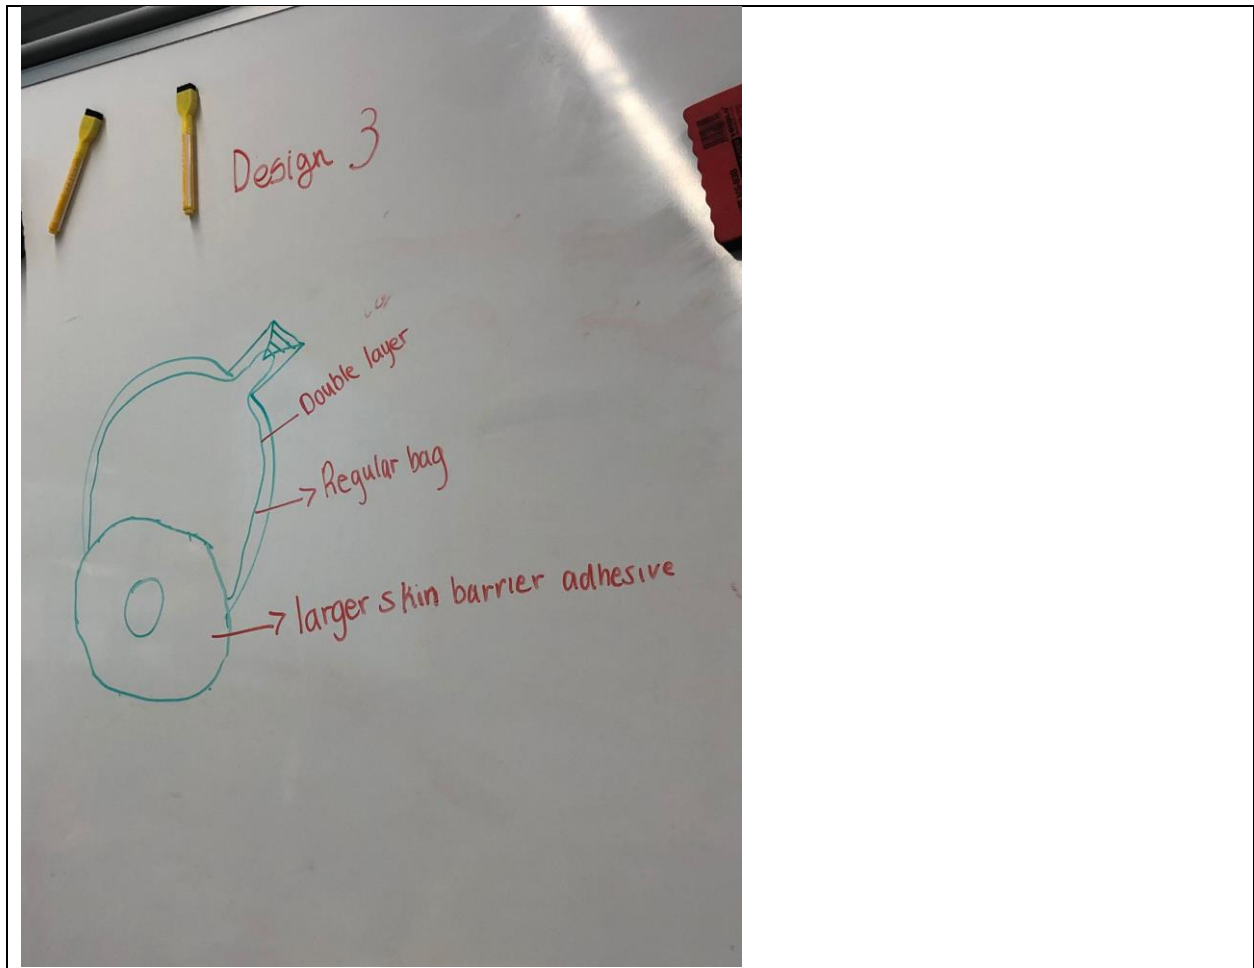 Design 3
Double layer
Regular bag
larger skin barrier adhesive